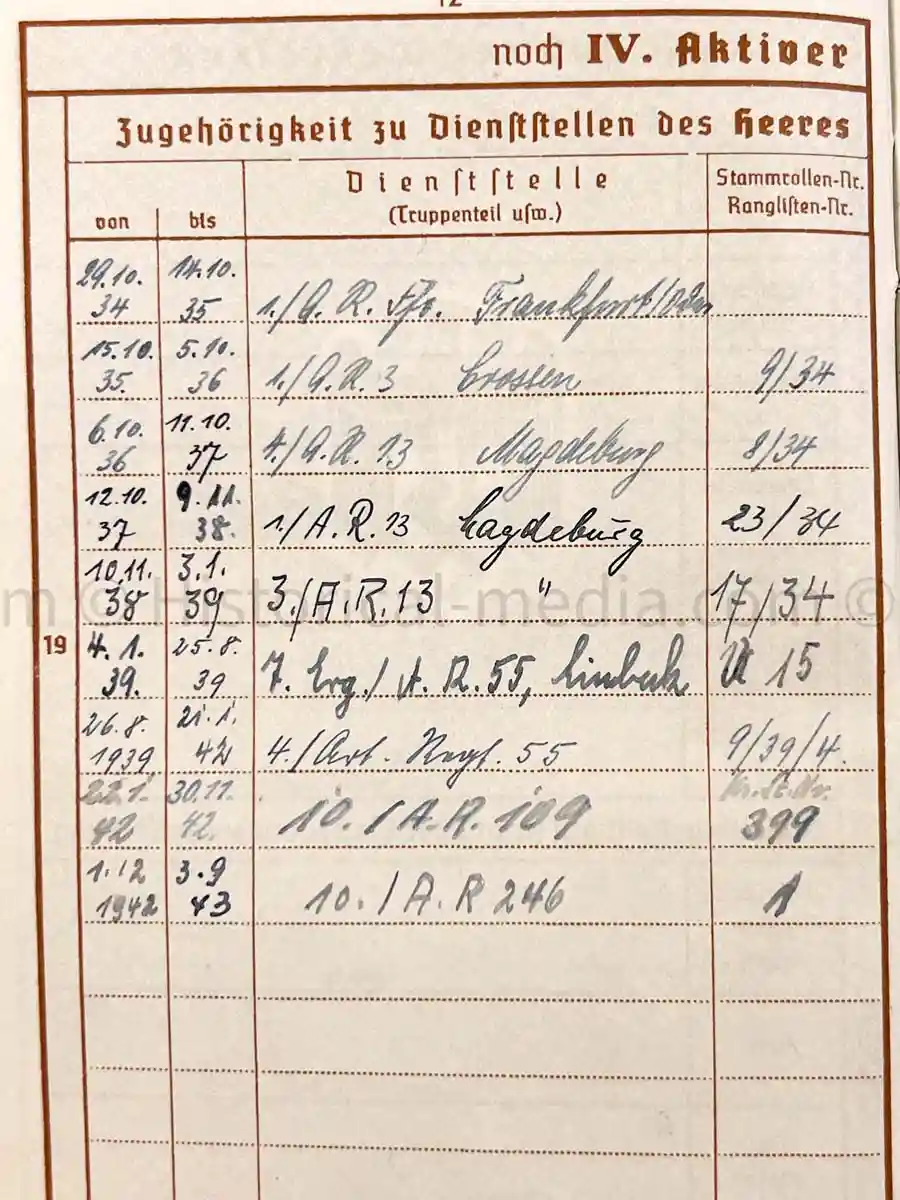 12
noch IV. Aktiver
Zugehörigkeit zu Dienststellen des Heeres
von bis
Dienststelle
(Truppenteil usw.)
Stammrollen-Nr.
Ranglisten-Nr.
29.10. 14.10.
34 35 1./A. R. Ffo. Frankfurt/Oder
15.10. 5.10.
35. 36 1./A.R. 3 Crossen 9/34
6.10. 11.10.
36 37 4./A.R. 13 Magdeburg 8/34
12.10. 9.11.
37 38. 1./A.R. 13 Magdeburg 23/34
10.11. 3.1.
38 39 3./A.R. 13 " 17/34
19
4. 1. 25.8.
39. 39 7. Erg./A. R. 55, 15
26.8. 21.1.
1939 42 4./Art. Regt. 55 9/39/4.
22.1. 30.11.
42 42. 10./A.R. 109 399
1.12 3.9
1942 43 10./A.R 246 1
m © Historical-media.com ©